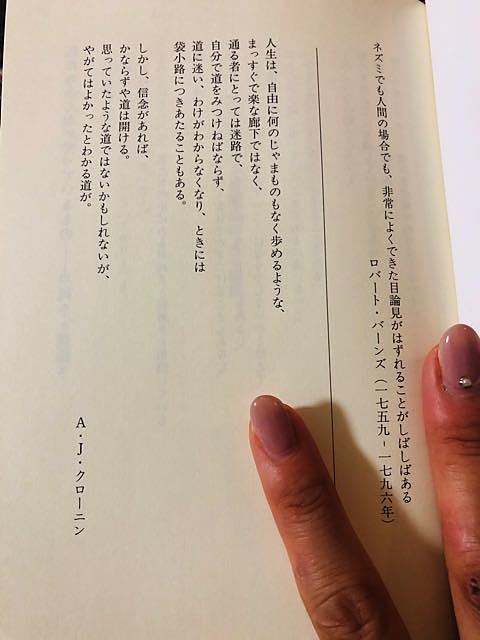 ネズミでも人間の場合でも、非常によくできた目論見がはずれることがしばしばある
ロバート・バーンズ(一七五九-一七九六年)
人生は、自由に何のじゃまものもなく歩めるような、
まっすぐで楽な廊下ではなく、
通る者にとっては迷路で、
自分で道をみつけねばならず、
道に迷い、わけがわからなくなり、ときには
袋小路につきあたることもある。
しかし、信念があれば、
かならずや道は開ける。
思っていたような道ではないかもしれないが、
やがてはよかったとわかる道が。
A・J・クローニン